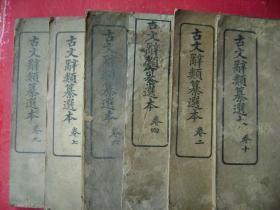 古文辭類纂選本 卷九
古文辭類纂選本 卷七
古文辭類纂選本 卷六
古文辭類纂選本 卷四
古文辭類纂選本 卷二
古文辭類纂選本 卷十